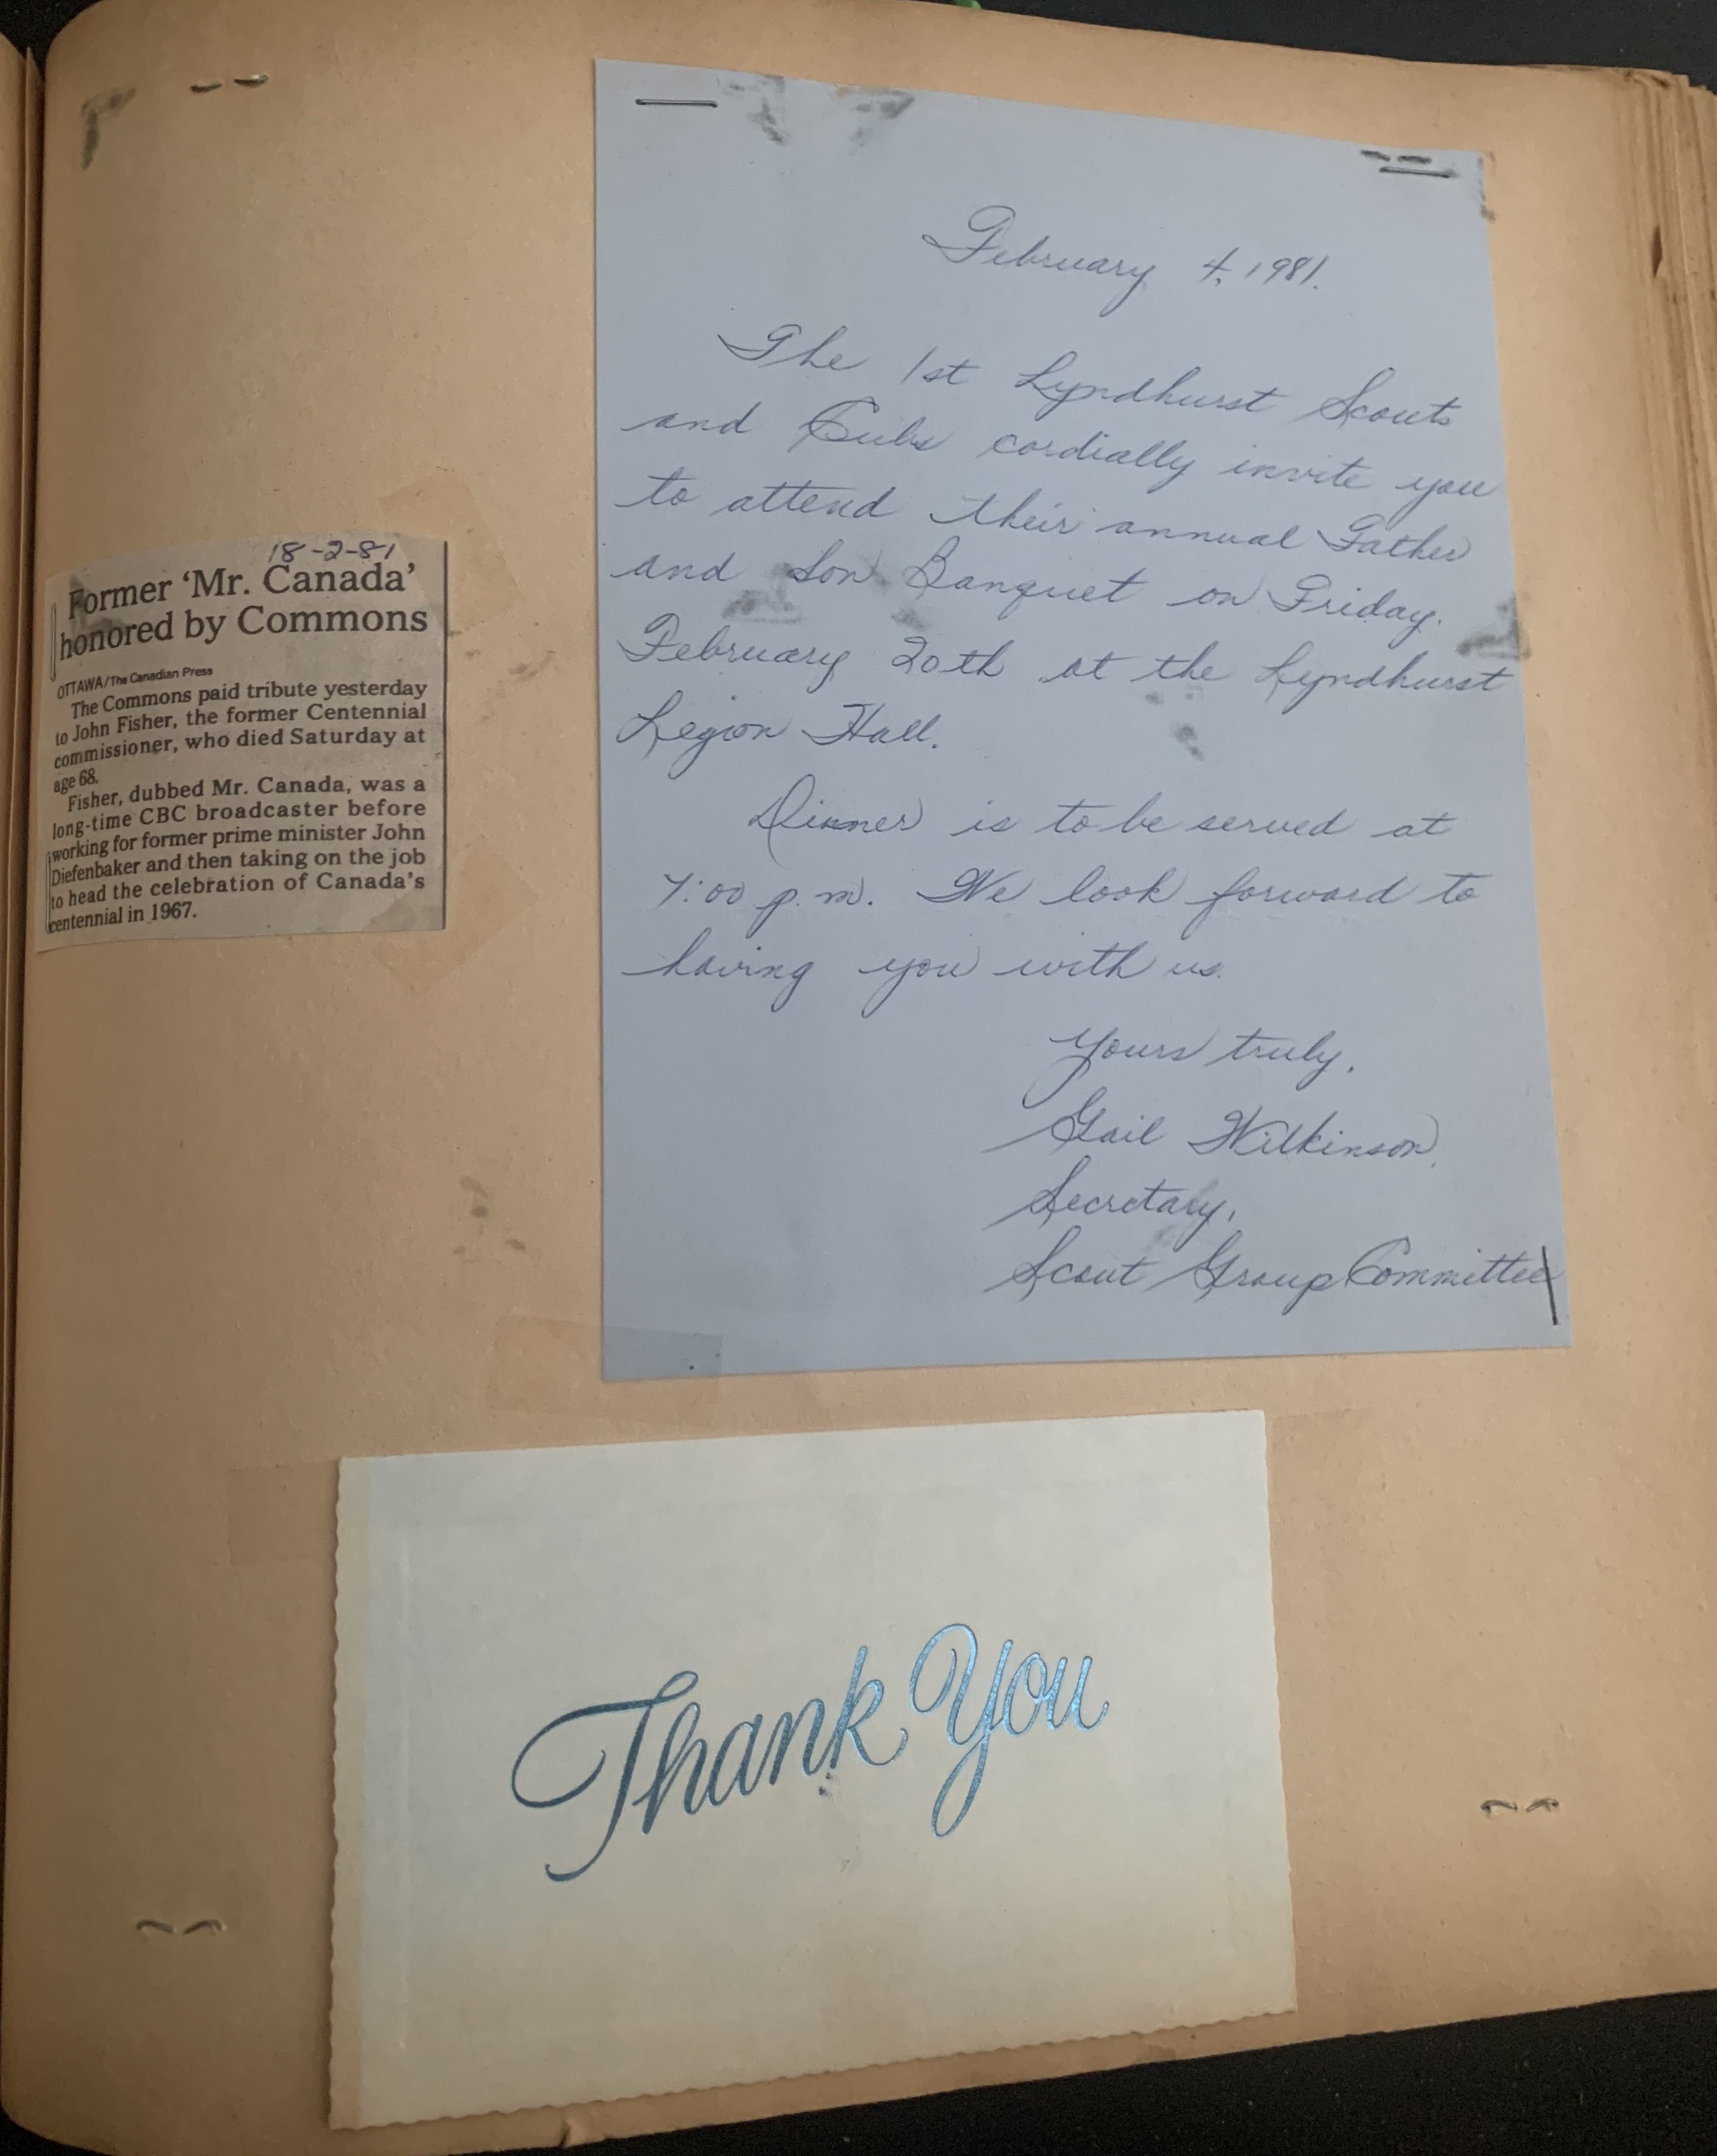 18-2-81
Former 'Mr. Canada'
honored by Commons
OTTAWA/The Canadian Press
The Commons paid tribute yesterday
to John Fisher, the former Centennial
commissioner, who died Saturday at
age 68.
Fisher, dubbed Mr. Canada, was a
long-time CBC broadcaster before
working for former prime minister John
Diefenbaker and then taking on the job
to head the celebration of Canada's
centennial in 1967.
February 4, 1981.
The 1st Lyndhurst Scouts
and Cubs cordially invite you
to attend their annual Father
and Son Banquet on Friday.
February 20th at the Lyndhurst
Legion Hall.
Dinner is to be served at
7:00 p.m. We look forward to
having you with us.
Yours truly,
Gail Wilkinson
Secretary,
Scout Group Committee
Thank You